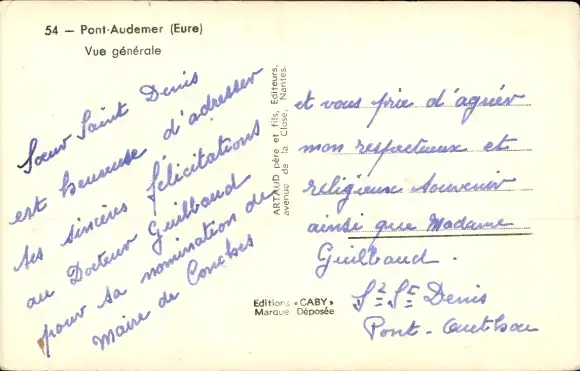 54 — Pont-Audemer (Eure)
Vue générale
Sœur Saint Denis
est heureuse d'adresser
ses sincères félicitations
au Docteur Guilbaud
pour sa nomination de
Maire de Conches
ARTAUD père et fils, Editeurs,
avenue de la Close, Nantes.
Editions «GABY»
Marque Déposée
et vous prie d'agréer
mon respectueux et
religieux souvenir
ainsi que Madame
Guilbaud.
Sr St Denis
Pont-